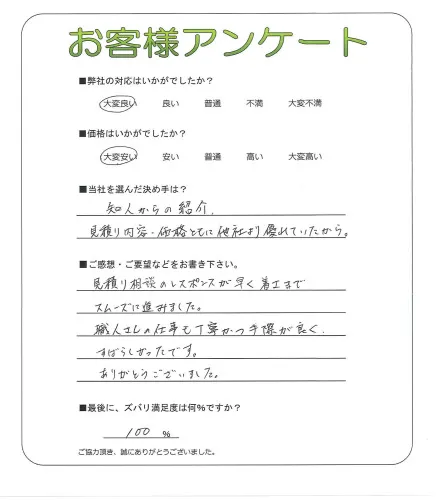 お客様アンケート
■弊社の対応はいかがでしたか？
大変良い 良い 普通 不満 大変不満
■価格はいかがでしたか？
大変安い 安い 普通 高い 大変高い
■当社を選んだ決め手は？
知人からの紹介.
見積り内容・価格ともに他社より優れていたから。
■ご感想・ご要望などをお書き下さい。
見積り相談のレスポンスが早く着工まで
スムーズに進みました。
職人さんの仕事も丁寧かつ手際が良く、
すばらしかったです。
ありがとうございました。
■最後に、ズバリ満足度は何%ですか？
100 %
ご協力頂き、誠にありがとうございました。